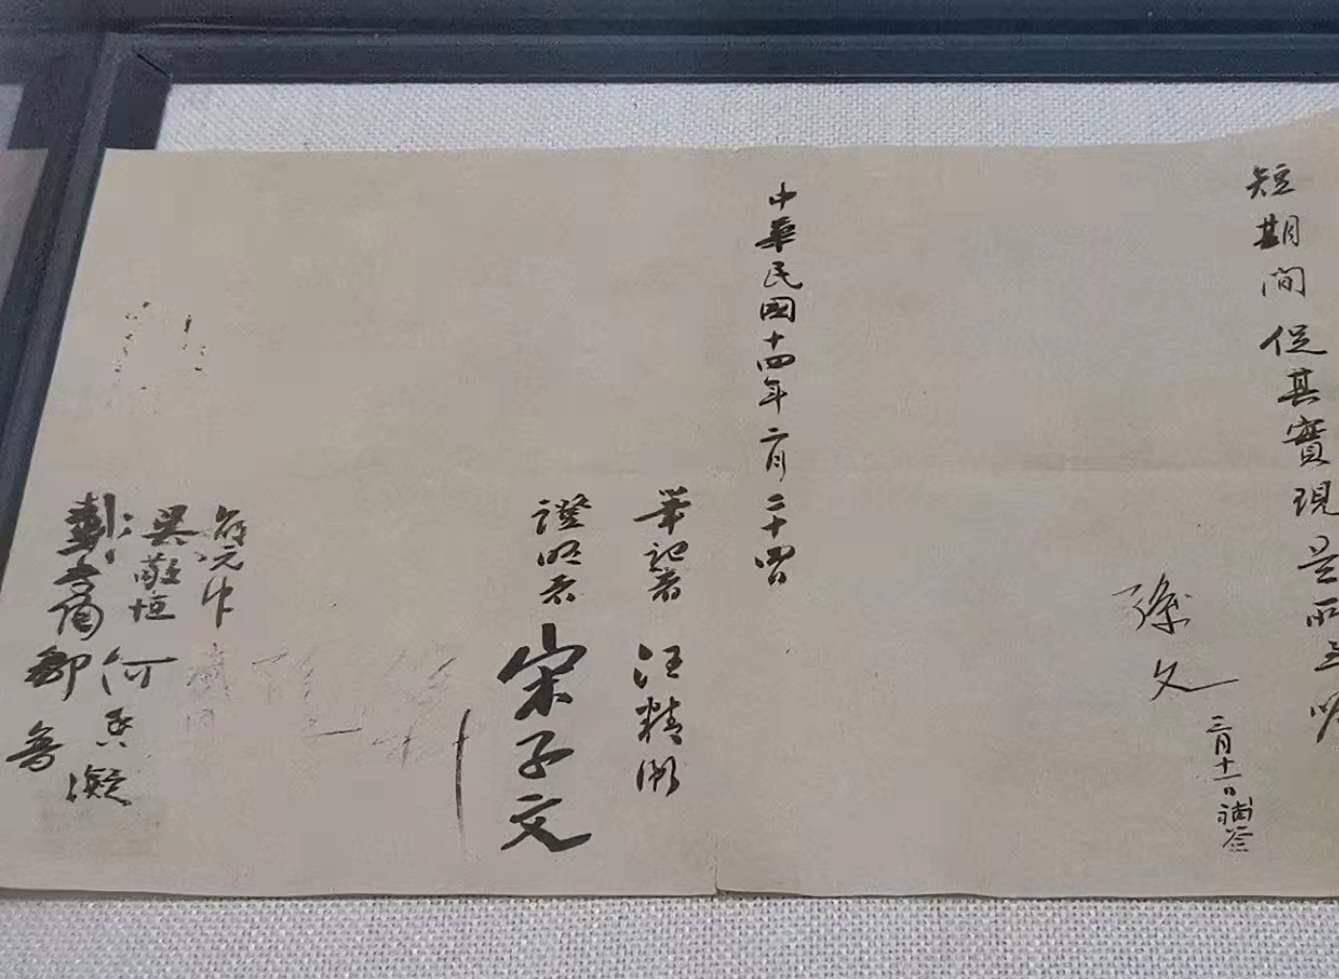 短期間促其實現是所至囑
孫文
三月十一日補簽
中華民國十四年二月二十四日
筆記者 汪精衛
證明者 宋子文
邵元冲
吳敬恒
何香凝
戴季陶
鄒魯